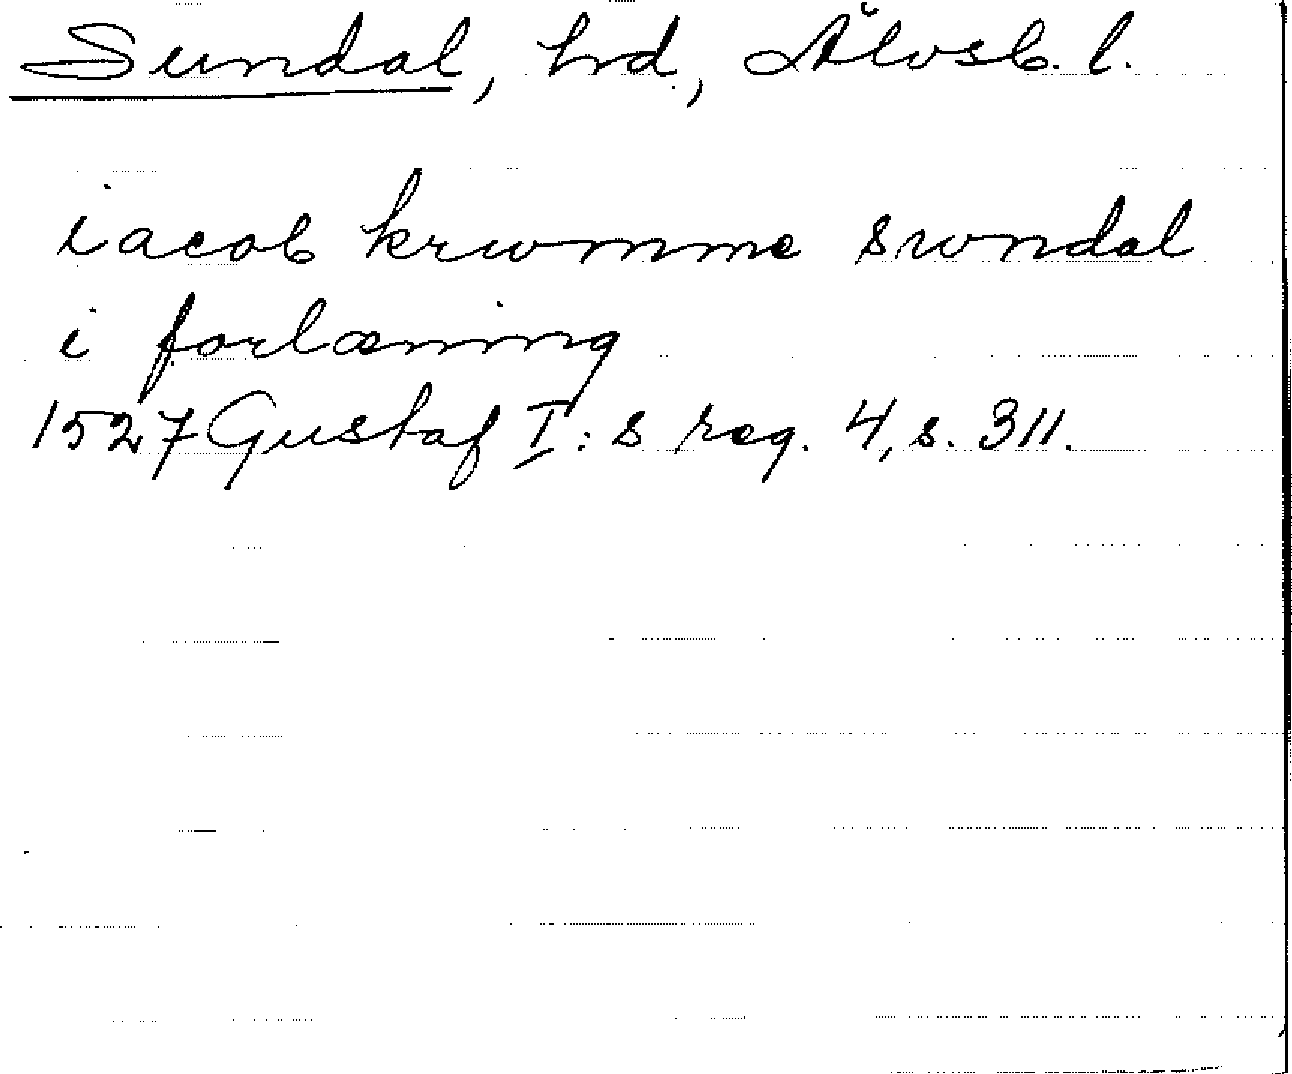 Sundal, hd., Älvsb. l.
iacob krwmme swndal
i forlæning
1527 Gustaf I:s reg. 4, s. 311.